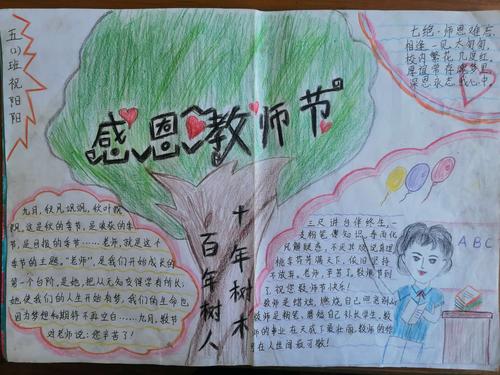 五(1)班祝阳阳
感恩教师节
七绝·师恩难忘
相逢一见太匆匆,
校内繁花几度红。
厚谊常存魂梦里,
深恩永志我心中。
十年树木
百年树人
ABC
九月,秋风飒飒,秋叶飘
飘,这是秋的季节,是收获的季
节,是回报的季节……老师,就是这个
季节的主题。"老师",是我们开始成长的
第一个台阶,是她,把从无知变得学有所长;
她使我们的人生开始有梦,我们的生命也
因为梦想和期待不再空白……九月,教师节
对老师说:您辛苦了!
三尺讲台伴终生,一
支粉笔
凡解疑惑,
桃李芬芳满天下,依旧坚持
不放弃。老师,辛苦了,教师节到
了,祝您教师节快乐!
教师是蜡烛,燃烧自己照亮别
教师是粉笔,磨短自己补长学生,教
师的事业在天底下最壮丽,教师的称
在人世间最可敬!